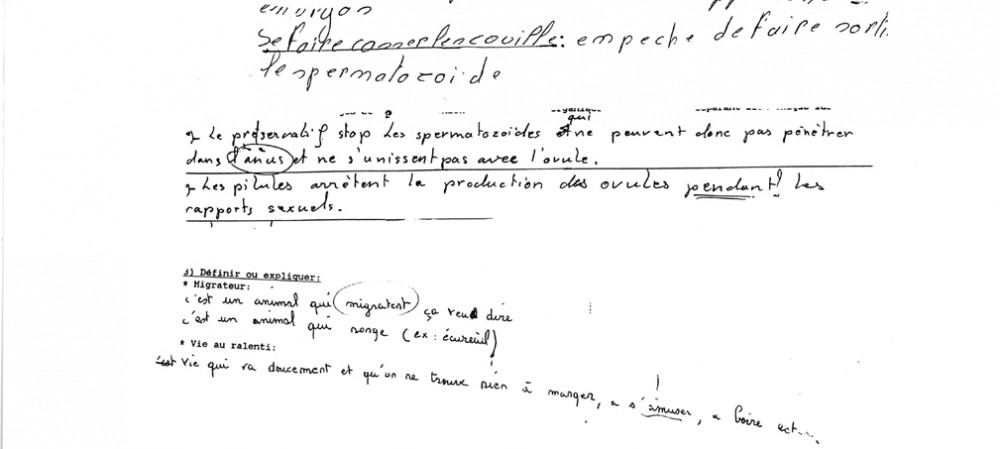 embryon
Se faire casser les couille: empeche de faire sortir
le spermatozoide
qui
2 Le préservatif stop les spermatozoïdes ne peuvent donc pas pénétrer
dans l'anus et ne s'unissent pas avec l'ovule.
2 Les pilules arrêtent la production des ovules pendant! les
rapports sexuels.
3) Définir ou expliquer:
* Migrateur:
c'est un animal qui migratent ça veut dire
c'est un animal qui ronge (ex: écureuil)
* Vie au ralenti:
Vie qui va doucement et qu'on ne trouve rien à manger, a s'amuser, a boire ect...